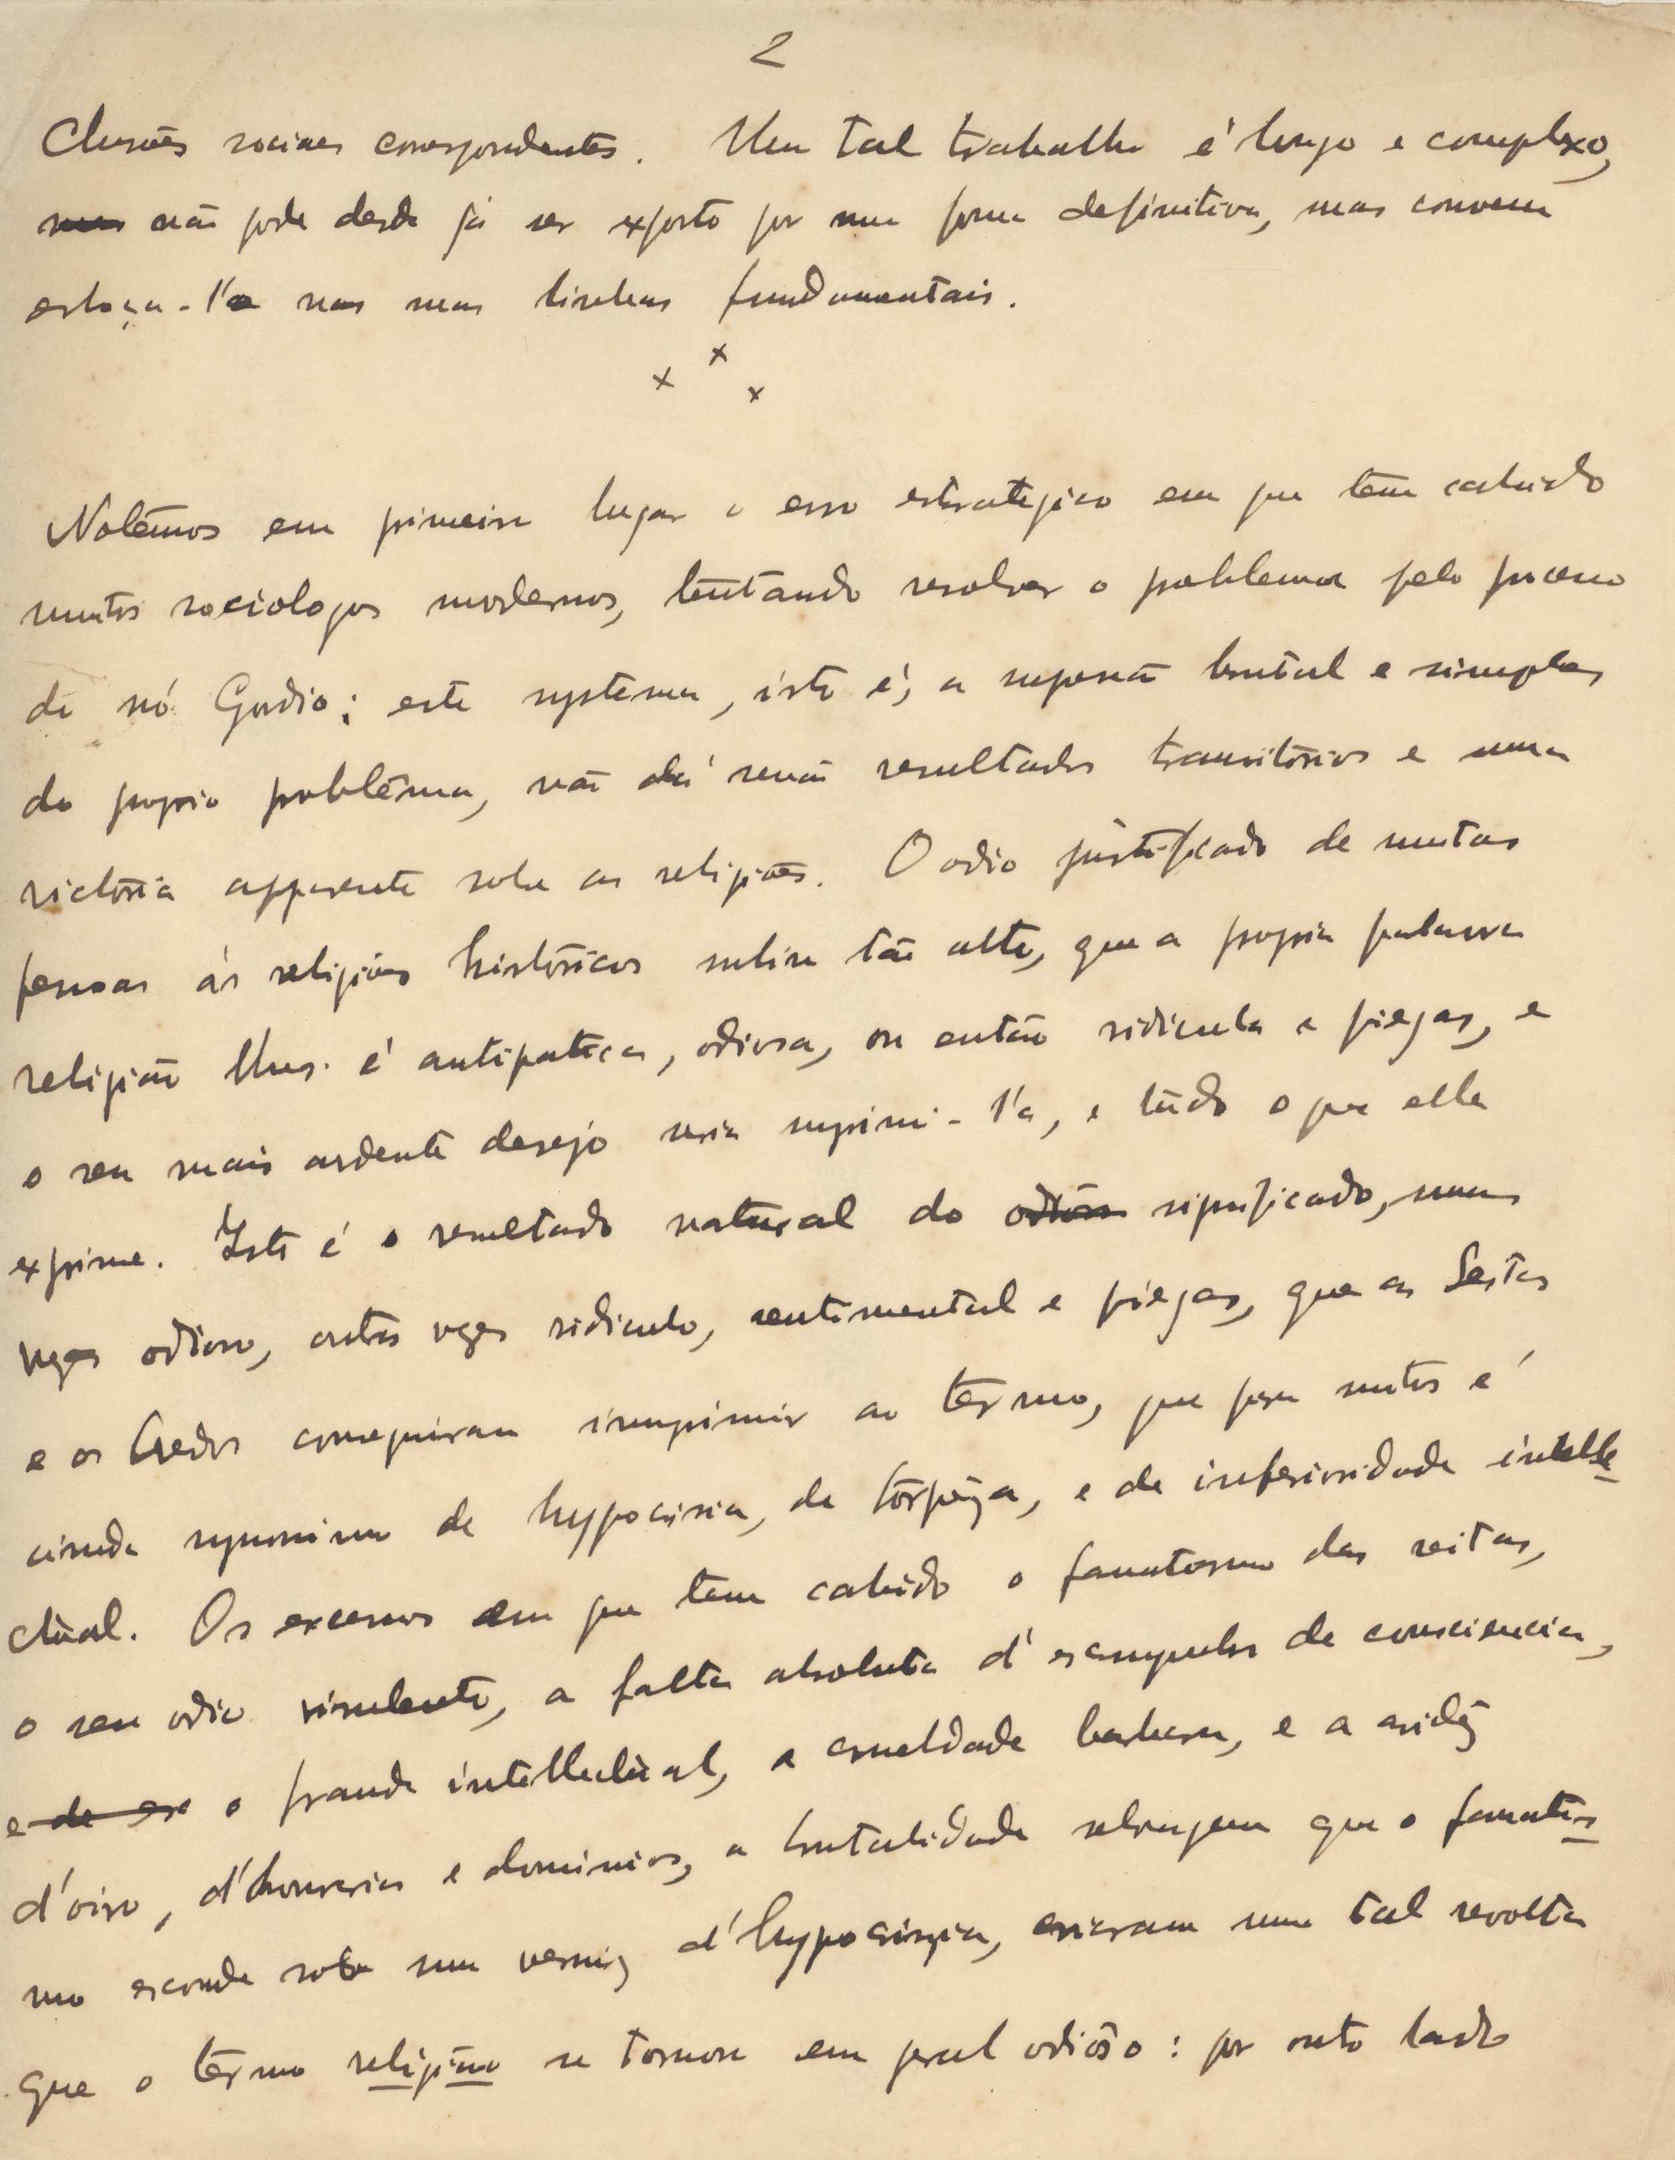 2
clusões sociaes correspondentes. Um tal trabalho é longo e complexo,
não pode desde já ser exposto por uma forma definitiva, mas convem
esboça-l'o nas suas linhas fundamentais.
x x x
Notêmos em primeiro lugar o erro estrategico em que têm cahido
muitos sociologos modernos, tentando resolver o problema pelo processo
do nó Gordio; este systema, isto é, a supressão brutal e simples
do proprio problêma, não dá senão resultados transitórios e uma
victória apparente sobre as religiões. O odio justificado de muitas
pessoas ás religiões históricas subiu tão alto, que a propria palavra
religião lhes é antipatica, odiosa, ou então ridicula e piegas, e
o seu mais ardente desejo seria suprimi-l'a, e tudo o que ella
exprime. Isto é o resultado natural do odioso significado, umas
vezes odioso, outras vezes ridiculo, sentimental e piegas, que as Seitas
e os Credos conseguiram imprimir ao termo, que para muitos é
ainda synonimo de hypocrisia, de tôrpeza, e de inferioridade intelle
ctual. Os excessos em que tem cahido o fanatismo das seitas,
o seu odio virulento, a falta absoluta d'escrupulos de consciencia,
e de ess o fraude intellectual, a crueldade barbara, e a aridez
d'oiro, d'honrarias e dominios, a brutalidade selvagem que o fanatis
mo esconde sobe um verniz d'hypocrisia, criaram uma tal revolta
que o têrmo religião se tornou em geral odiôso: por outo lado